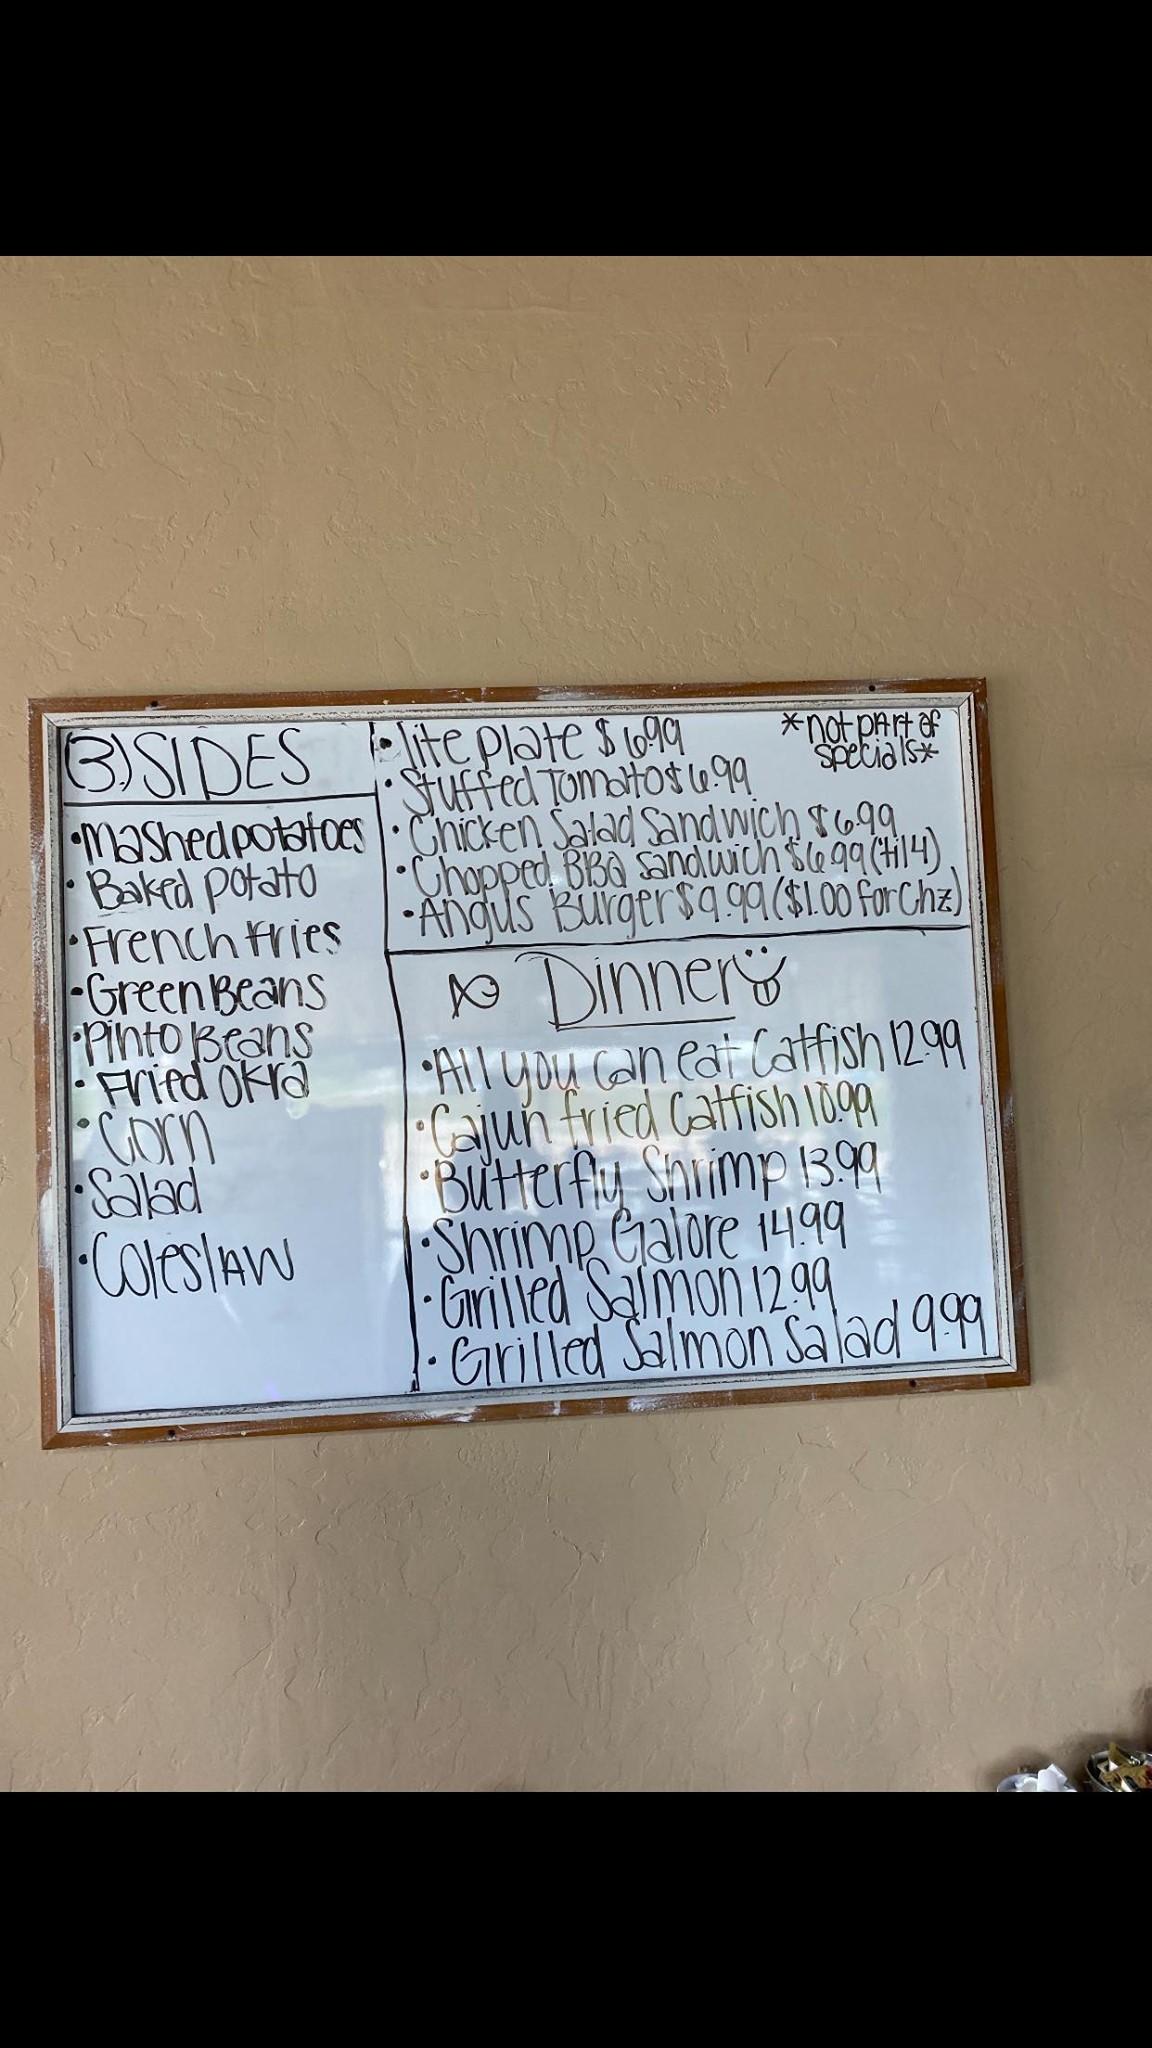 (3.) SIDES
• Mashed potatoes
• Baked potato
• French fries
• Green Beans
• Pinto Beans
• Fried Okra
• Corn
• Salad
• Coleslaw
• lite plate $6.99
*not part of
specials*
• Stuffed Tomato $6.99
• Chicken Salad Sandwich $6.99
• Chopped BBQ Sandwich $6.99 ('til 4)
• Angus Burger $9.99 ($1.00 for Chz)
Dinner
• All you can eat Catfish 12.99
• Cajun fried Catfish 10.99
• Butterfly Shrimp 13.99
• Shrimp Galore 14.99
• Grilled Salmon 12.99
• Grilled Salmon Salad 9.99